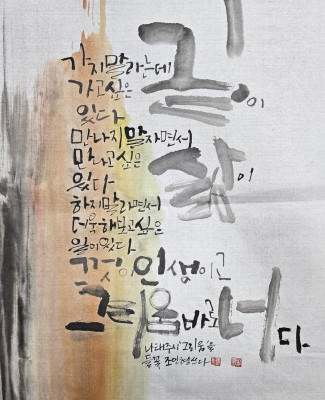 가지말라는데
가고싶은 길이
있다
만나지말자면서
만나고싶은 삶이
있다
하지말라면서
더욱해보고싶은
일이있다
그것이인생이고
그리움바로너다
나태주시 '그리움'을
들꽃 조인형쓰다